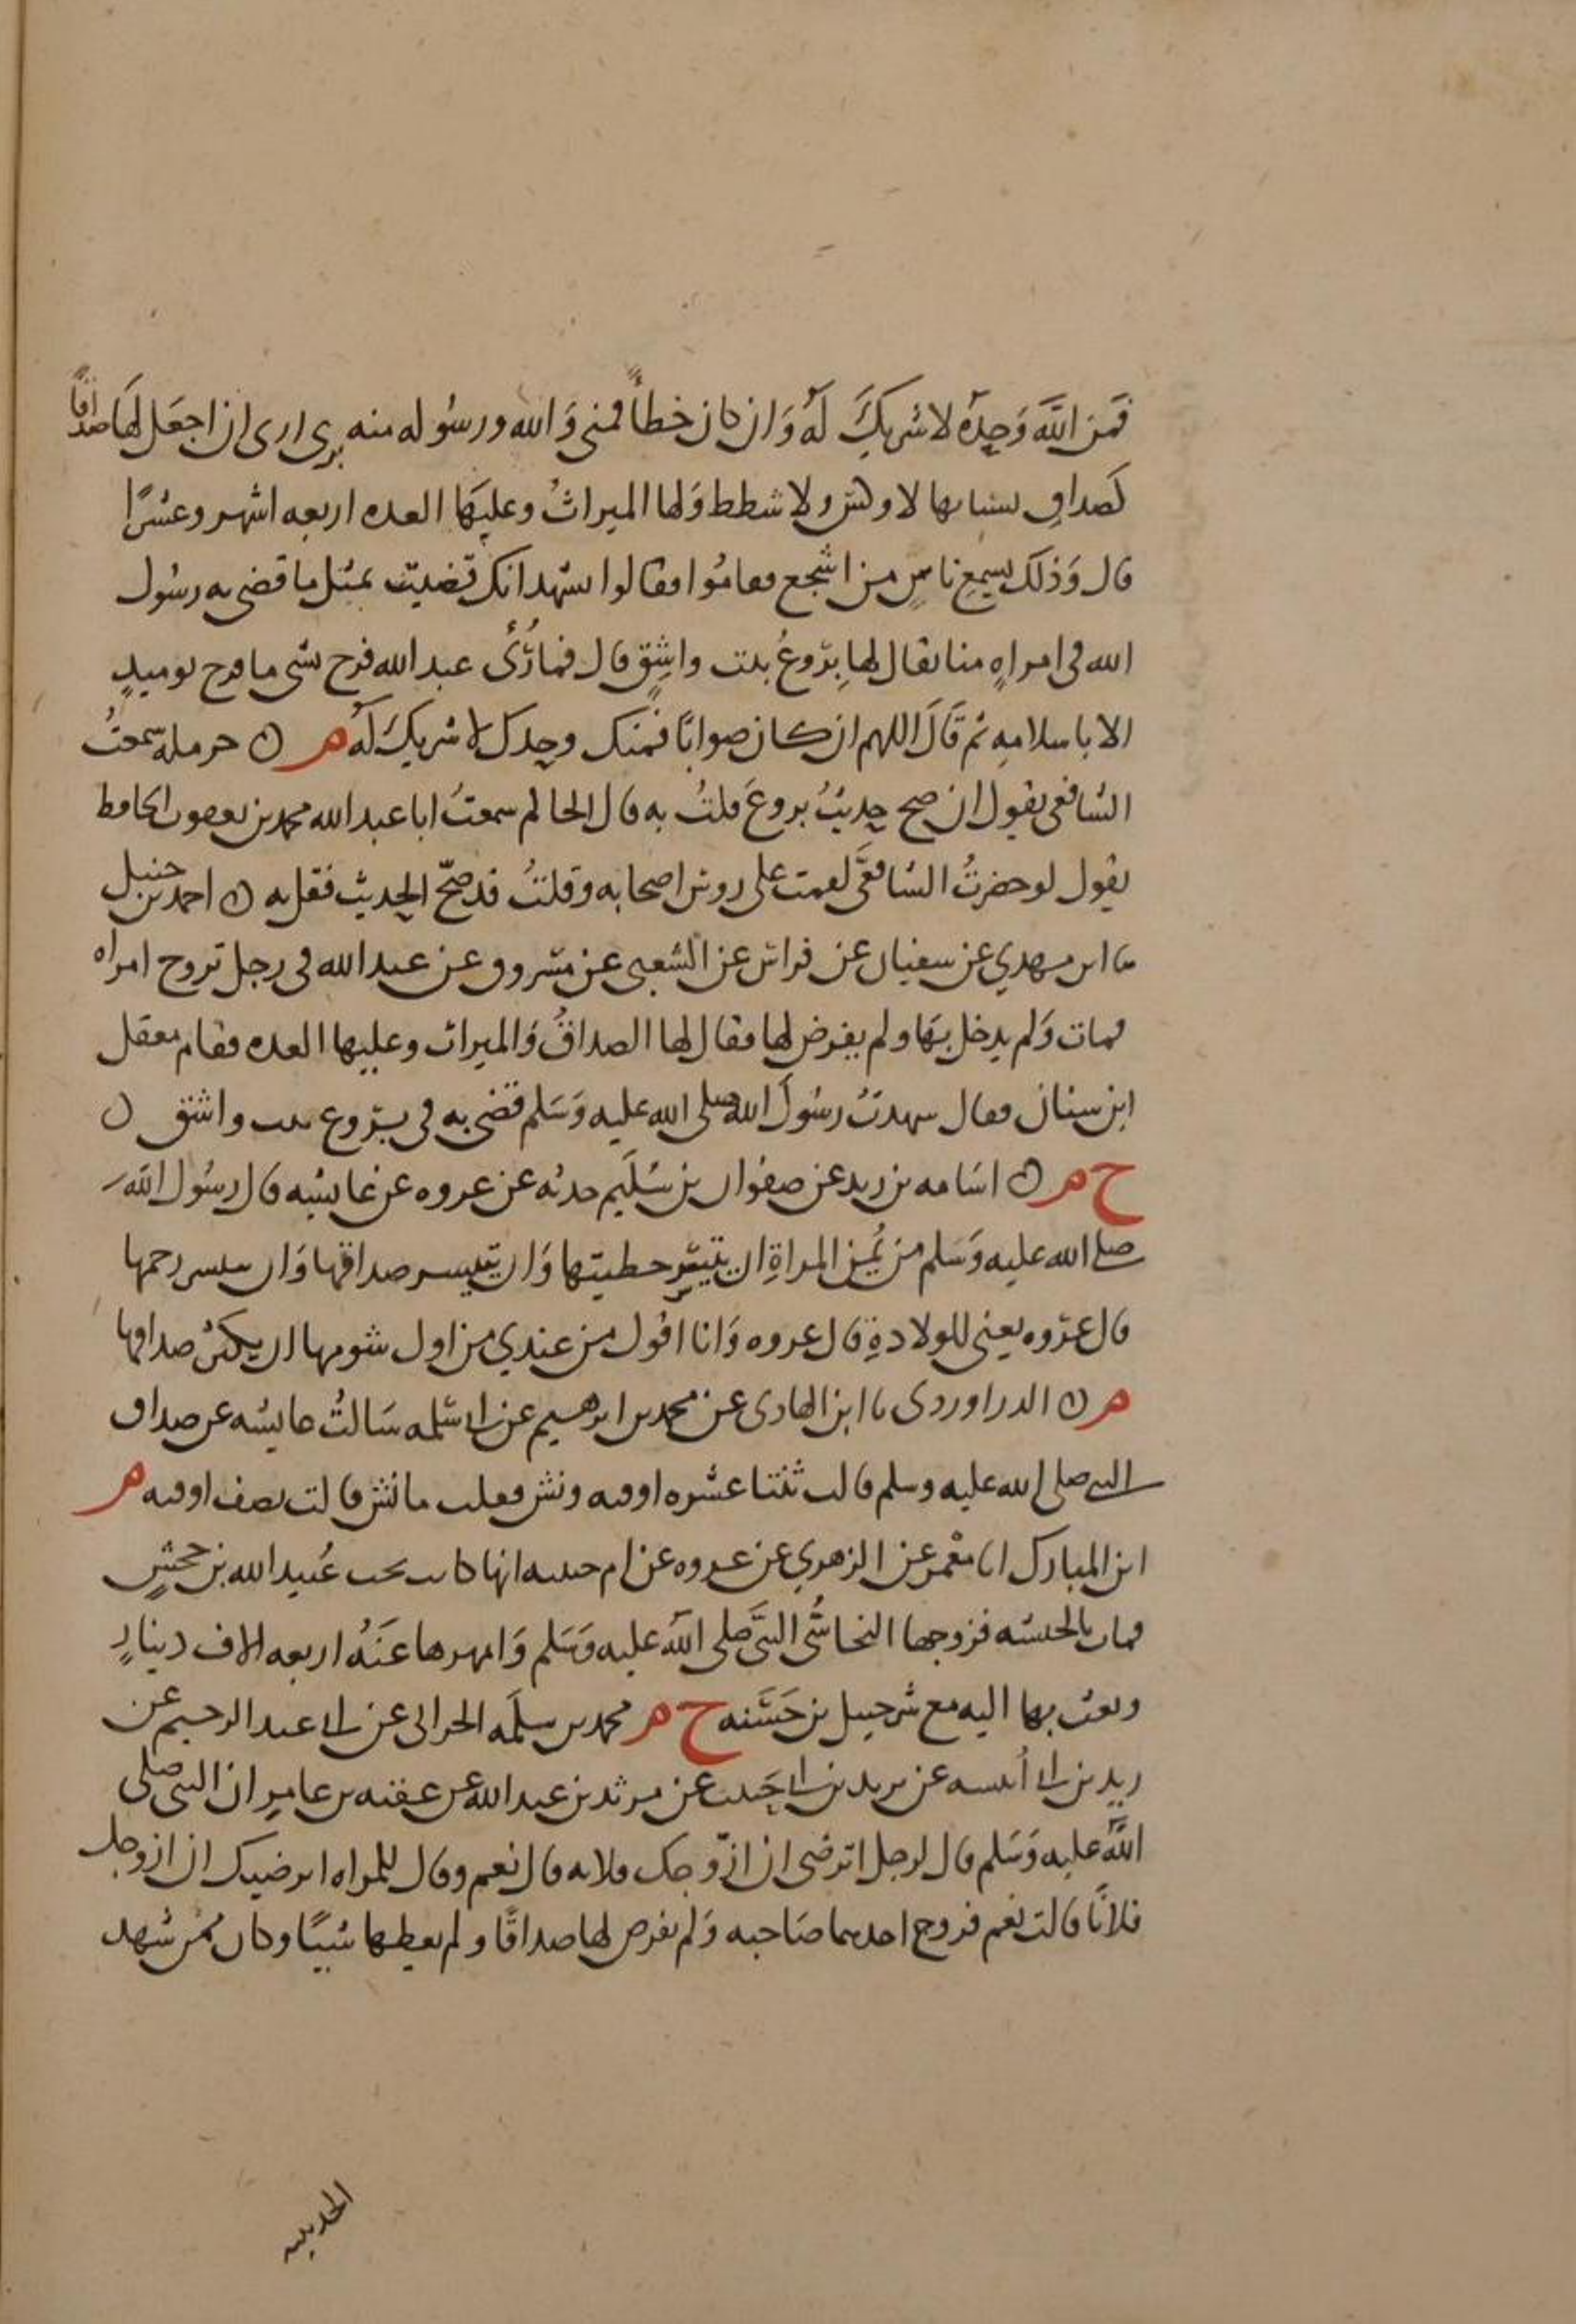 فمن الله وحده لا شريك له وان كان خطأ فمني والله ورسوله منه بري ارى ان اجعل لها صداقا
كصداق نسايها لا وكس ولا شطط ولها الميراث وعليها العده اربعه اشهر وعشرا
قال وذلك بسمع ناس من اشجع فقاموا فقالوا نشهد انك قضيت بمثل ما قضى به رسول
الله في امراه منا يقال لها بروع بنت واشق قال فما رئى عبد الله فرح بشى ما فرح يوميد
الا باسلامه ثم قال اللهم ان كان صوابا فمنك وحدك لا شريك له ه ن حرمله سمعت
الشافعي يقول ان صح حديث بروع قلت به قال الحاكم سمعت ابا عبد الله محمد بن يعقوب الحافظ
يقول لو حضرت الشافعي لقمت على روس اصحابه وقلت قد صح الحديث فقل به ن احمد بن حنبل
نا ابن مهدي عن سفيان عن فراس عن الشعبي عن مسروق عن عبد الله في رجل تزوج امراه
فمات ولم يدخل بها ولم يفرض لها فقال لها الصداق والميراث وعليها العده فقام معقل
ابن سنان فقال شهدت رسول الله صلى الله عليه وسلم قضى به في بروع بنت واشق ن
خ م ن اسامه بن زيد عن صفوان بن سليم حدثه عن عروه عن عايشه قال رسول الله
صلى الله عليه وسلم من يمن المراة ان يتيسر خطبتها وان يتيسر صداقها وان يتيسر رحمها
قال عروه يعني للولادة قال عروه وانا اقول من عندي من اول شومها ان يكثر صداقها
م ن الدراوردى نا ابن الهادى عن محمد بن ابرهيم عن ابى سلمه سالت عايشه عن صداق
النبى صلى الله عليه وسلم قالت ثنتا عشره اوقيه ونش فقلت ما نش قالت نصف اوقيه م
ابن المبارك انا معمر عن الزهري عن عروه عن ام حبيبه انها كانت تحت عبيد الله بن جحش
فمات بالحبشه فزوجها النجاشى النبى صلى الله عليه وسلم وامهرها عنه اربعه الاف دينار
وبعث بها اليه مع شرحبيل بن حسنه خ م محمد بن سلمه الحرانى عن ابى عبد الرحيم عن
زيد بن ابى انيسه عن يزيد بن ابى حبيب عن مرثد بن عبد الله عن عقبه بن عامر ان النبى صلى
الله عليه وسلم قال لرجل اترضى ان ازوجك فلانه قال نعم وقال للمراه اترضين ان ازوجك
فلانا قالت نعم فزوج احدهما صاحبه ولم يفرض لها صداقا ولم يعطها شيا وكان ممن شهد
الحديبيه